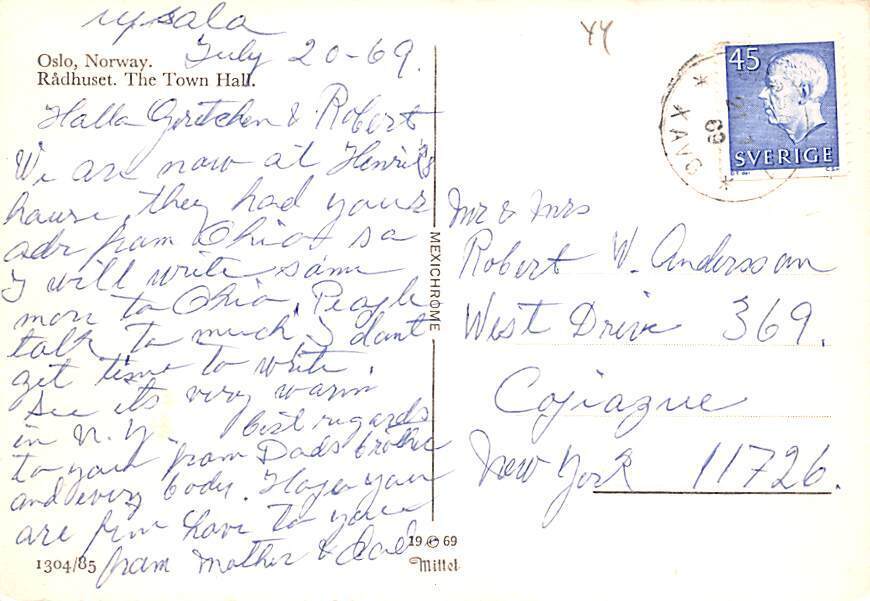 Upsala
July 20-69.
Oslo, Norway.
Rådhuset. The Town Hall.
Halla Gretchen & Robert
We are now at Henriks
hause, they had your
adr fram Ohio sa
I will write same
mor to Ohio. People
talk to much, I dant
get time to write.
See its very warm
in N.Y. best regards
to you fram Dads brother
and every body. Hope you
are fine love to you
fram Mother & Dad
1304/85
MEXICHROME
19 © 69
Mittet
44
45
SVERIGE
SAVXX
69
Mr & Mrs
Robert W. Andersson
West Drive 369.
Copiague
New York 11726.